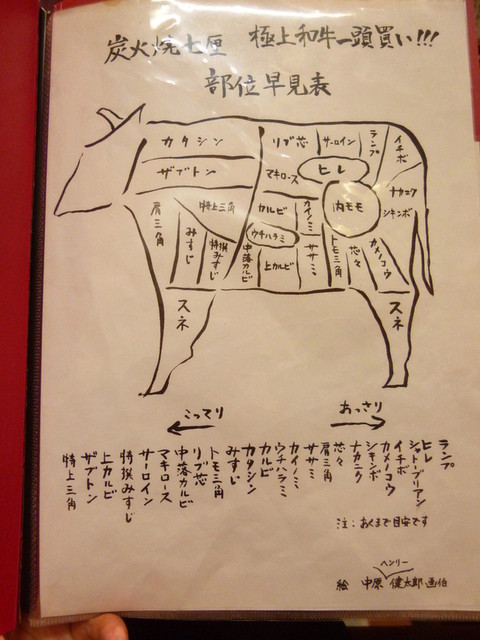 炭火焼七厘 極上和牛一頭買い!!!
部位早見表
カタシン
ザブトン
リブ芯
サーロイン
ランプ
イチボ
マキロース
ヒレ
ナカニク
シキンボ
肩三角
みすじ
特上三角
特撰みすじ
カルビ
カイノミ
内モモ
ウチハラミ
中落カルビ
上カルビ
ササミ
トモ三角
芯々
カメノコウ
スネ
スネ
こってり
あっさり
ランプ
ヒレ
シャトーブリアン
イチボ
カメノコウ
シキンボ
ナカニク
芯々
肩三角
ササミ
カイノミ
ウチハラミ
カルビ
カタシン
みすじ
トモ三角
リブ芯
中落カルビ
マキロース
サーロイン
特撰みすじ
上カルビ
ザブトン
特上三角
注:あくまで目安です
ヘンリー
絵 中原 健太郎画伯